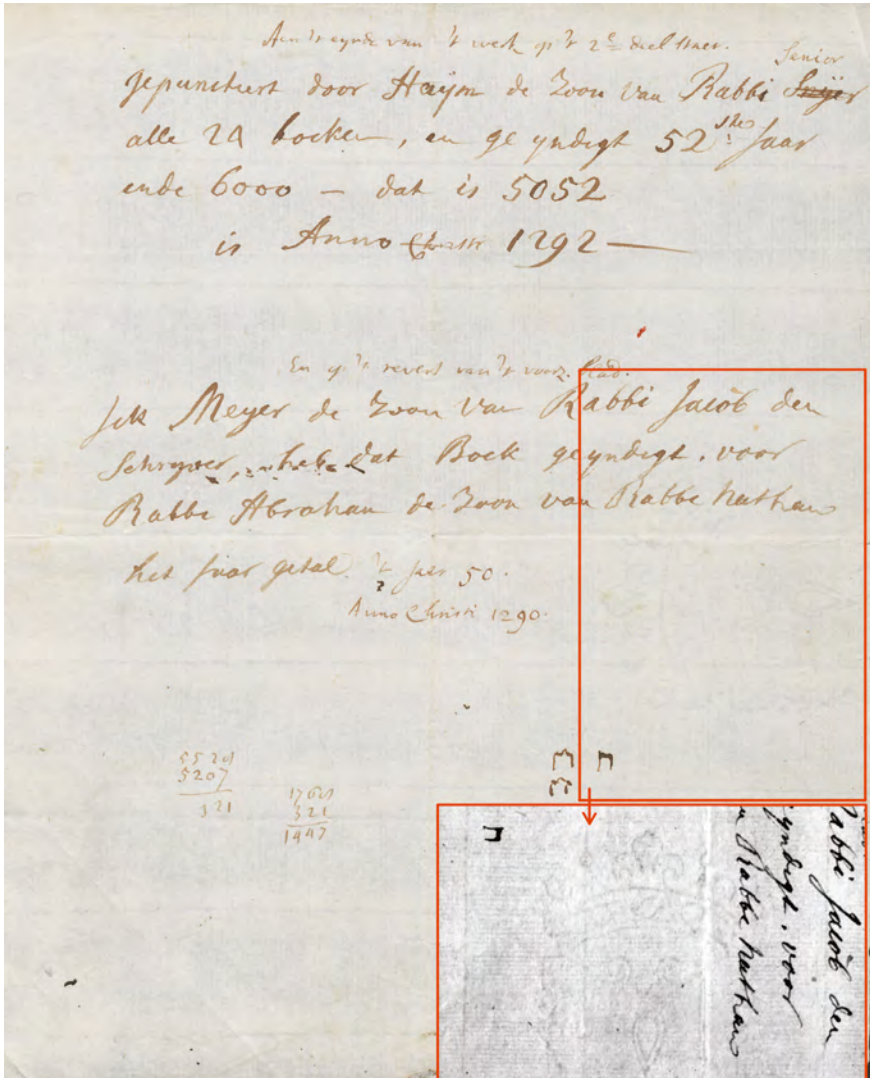 Aen 't eynde van 't werk op 't 2e deel staet.
Senior
gepunctuert door Haijm de Zoon van Rabbi Snijer
alle 24 boeken, en ge yndigt 52ste Jaar
ende 6000 — dat is 5052
is Anno Christi 1292 —
En op 't revers van 't voorz. blad.
Jck Meyer de Zoon van Rabbi Jacob den
Schryver, heb dat Boek geyndigt. voor
Rabbi Abraham de Zoon van Rabbi Nathan
het Jaar getal. 't Jaer 50.
?
Anno Christi 1290.
5207
321
321
1447
abbi Jacob den
yndigt. voor
n Rabbi Nathan